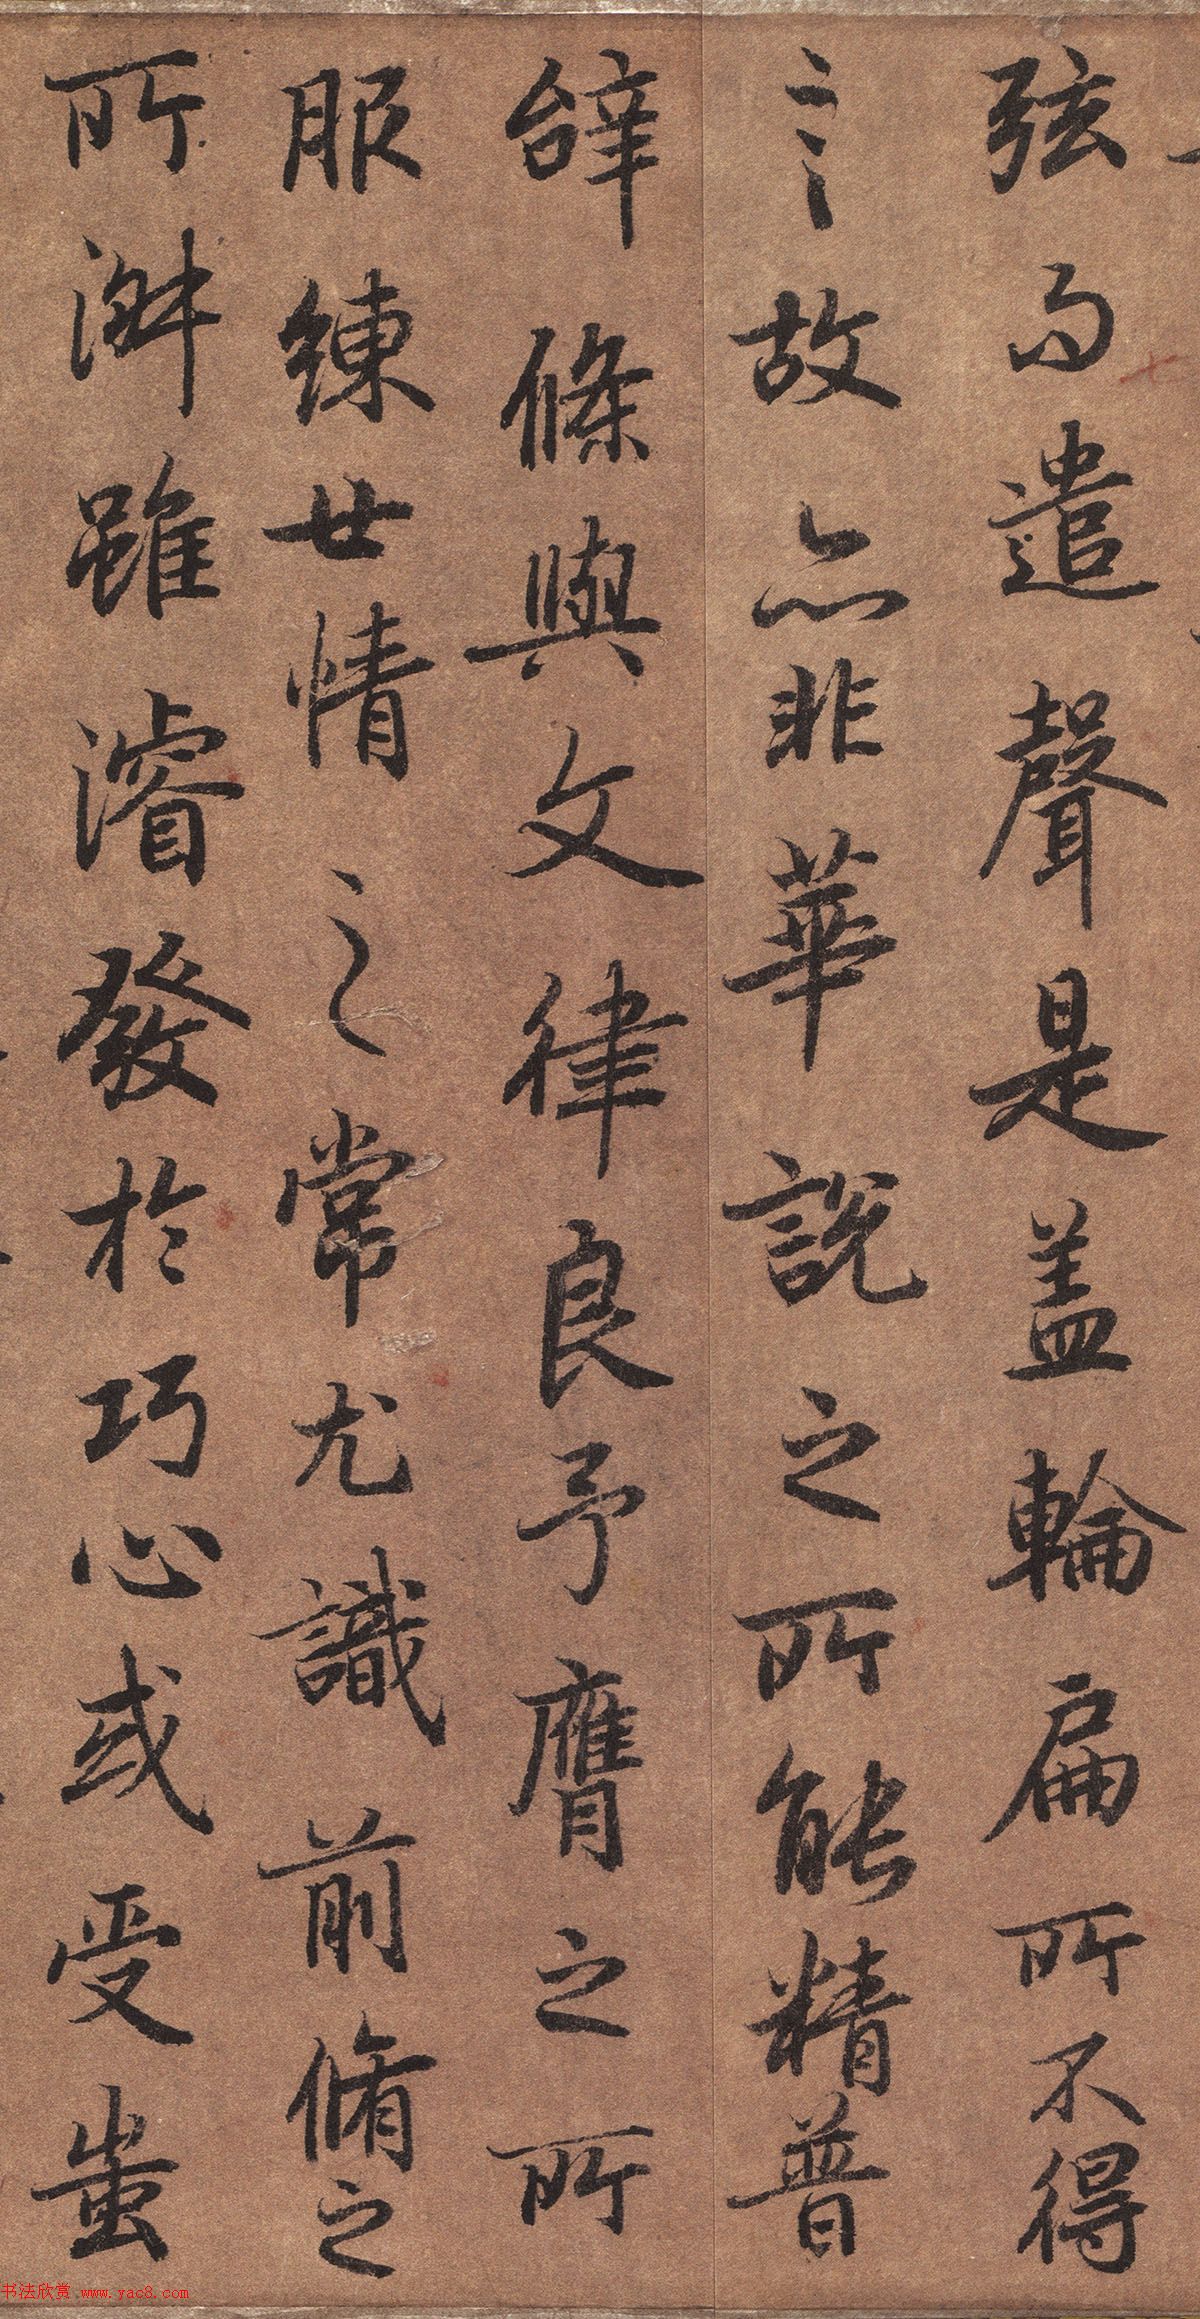 弦而遣聲是盖輪扁所不得
言故亦非華説之所能精普
辞條與文律良予膺之所
服練世情之常尤識前脩之
所淋雖濬發於巧心或受蚩
书法欣赏 www.yac8.com